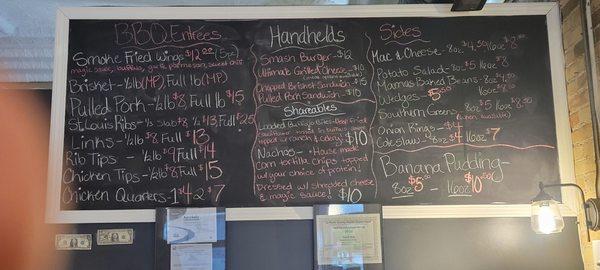 BBQ Entrées
Smoke Fried Wings $12.00 (5pc)
magic sauce, buffalo, garlic parmesan, sweet chili
Brisket - 1/2 lb (MP), Full lb (MP)
Pulled Pork - 1/2 lb $8 Full lb $15
St. Louis Ribs - 1/3 Slab $8 1/2 $13 Full $25
Links - 1/2 lb $8 Full $13
Rib Tips - 1/2 lb $9 Full $14
Chicken Tips - 1/2 lb $8 Full $15
Chicken Quarters - 1 $4 2 $7
Handhelds
Smash Burger - $12
Ultimate Grilled Cheese $10
Chopped Brisket Sandwich $15
Pulled Pork Sandwich $10
Shareables
Loaded Buffalo Bites - Deep Fried
cauliflower in buffalo
topped w/ ranch & $10
Nachos - House made
corn tortilla chips topped
w/ your choice of protein!
Dressed w/ shredded cheese
& magic sauce! $10
Sides
Mac & Cheese - 8oz $4.50 16oz $8.00
Potato Salad - 8oz $5 16oz $8
Mamas Baked Beans - 8oz $4.50
Wedges $5.00 16oz $8
Southern Greens 8oz $5 16oz $8.50
Onion Rings - $4
Coleslaw - 8oz $4 16oz $7
Banana Pudding -
8oz $5.00 - 16oz $10.00